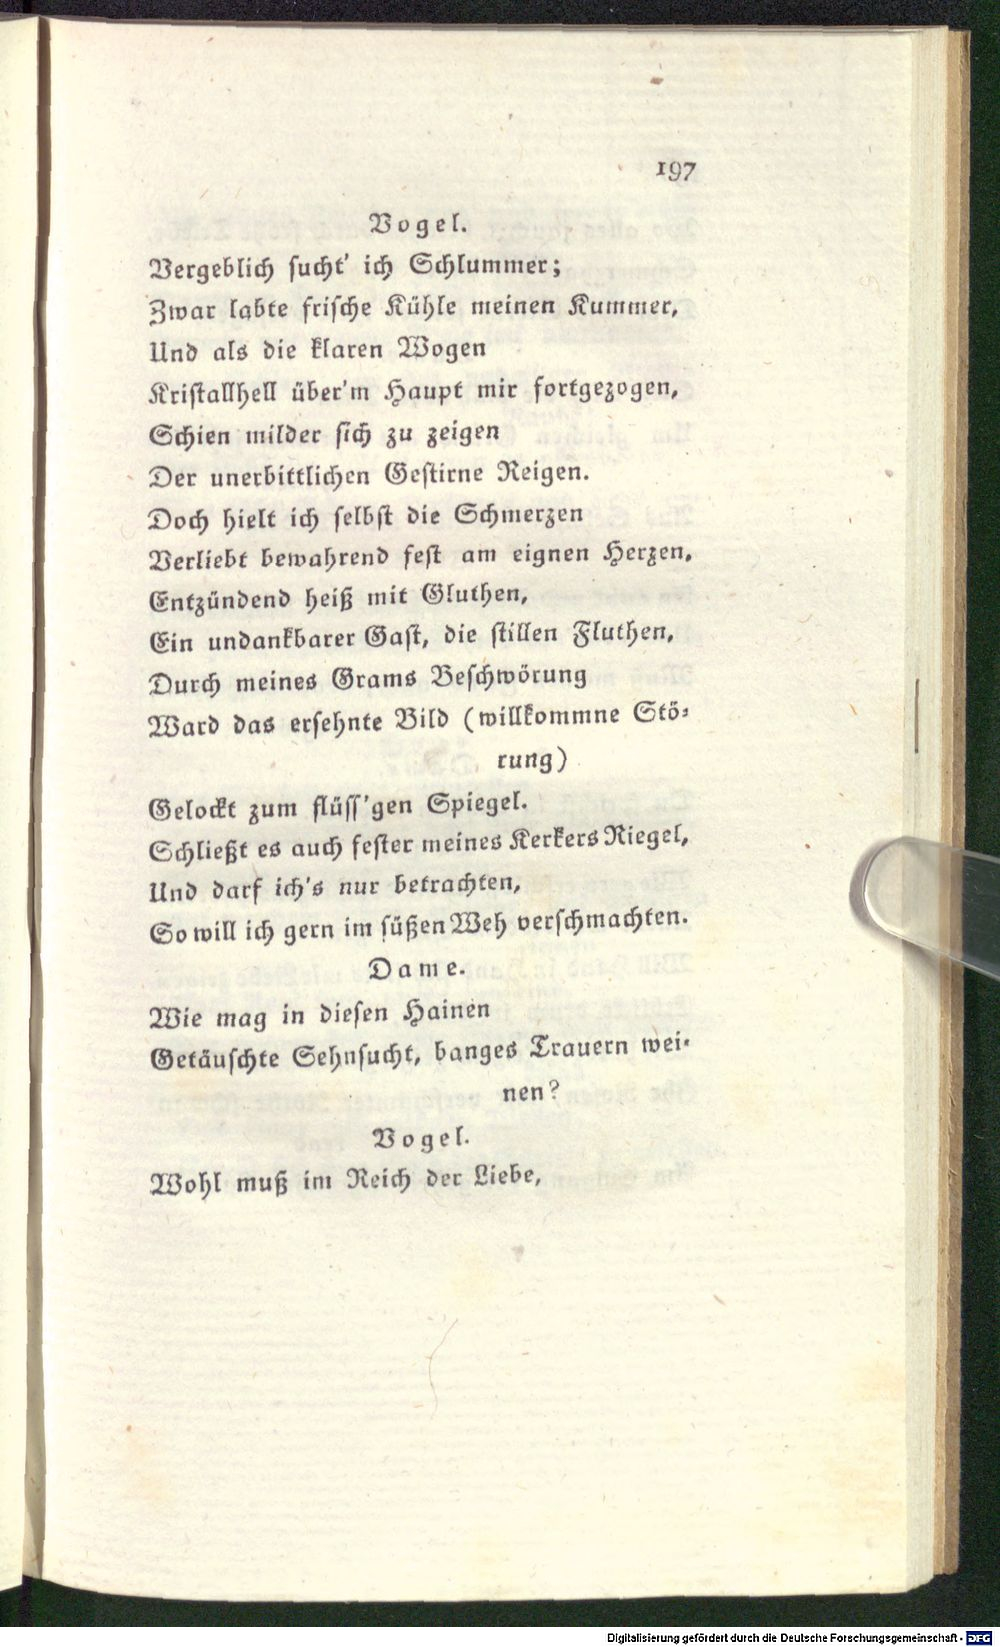 197
Vogel.
Vergeblich sucht' ich Schlummer;
Zwar labte frische Kühle meinen Kummer,
Und als die klaren Wogen
Kristallhell über'm Haupt mir fortgezogen,
Schien milder sich zu zeigen
Der unerbittlichen Gestirne Reigen.
Doch hielt ich selbst die Schmerzen
Verliebt bewahrend fest am eignen Herzen,
Entzündend heiß mit Gluthen,
Ein undankbarer Gast, die stillen Fluthen,
Durch meines Grams Beschwörung
Ward das ersehnte Bild (willkommne Stö-
rung)
Gelockt zum flüss'gen Spiegel.
Schließt es auch fester meines Kerkers Riegel,
Und darf ich's nur betrachten,
So will ich gern im süßen Weh verschmachten.
Dame.
Wie mag in diesen Hainen
Getäuschte Sehnsucht, banges Trauern wei-
nen?
Vogel.
Wohl muß im Reich der Liebe,
Digitalisierung gefördert durch die Deutsche Forschungsgemeinschaft - DFG